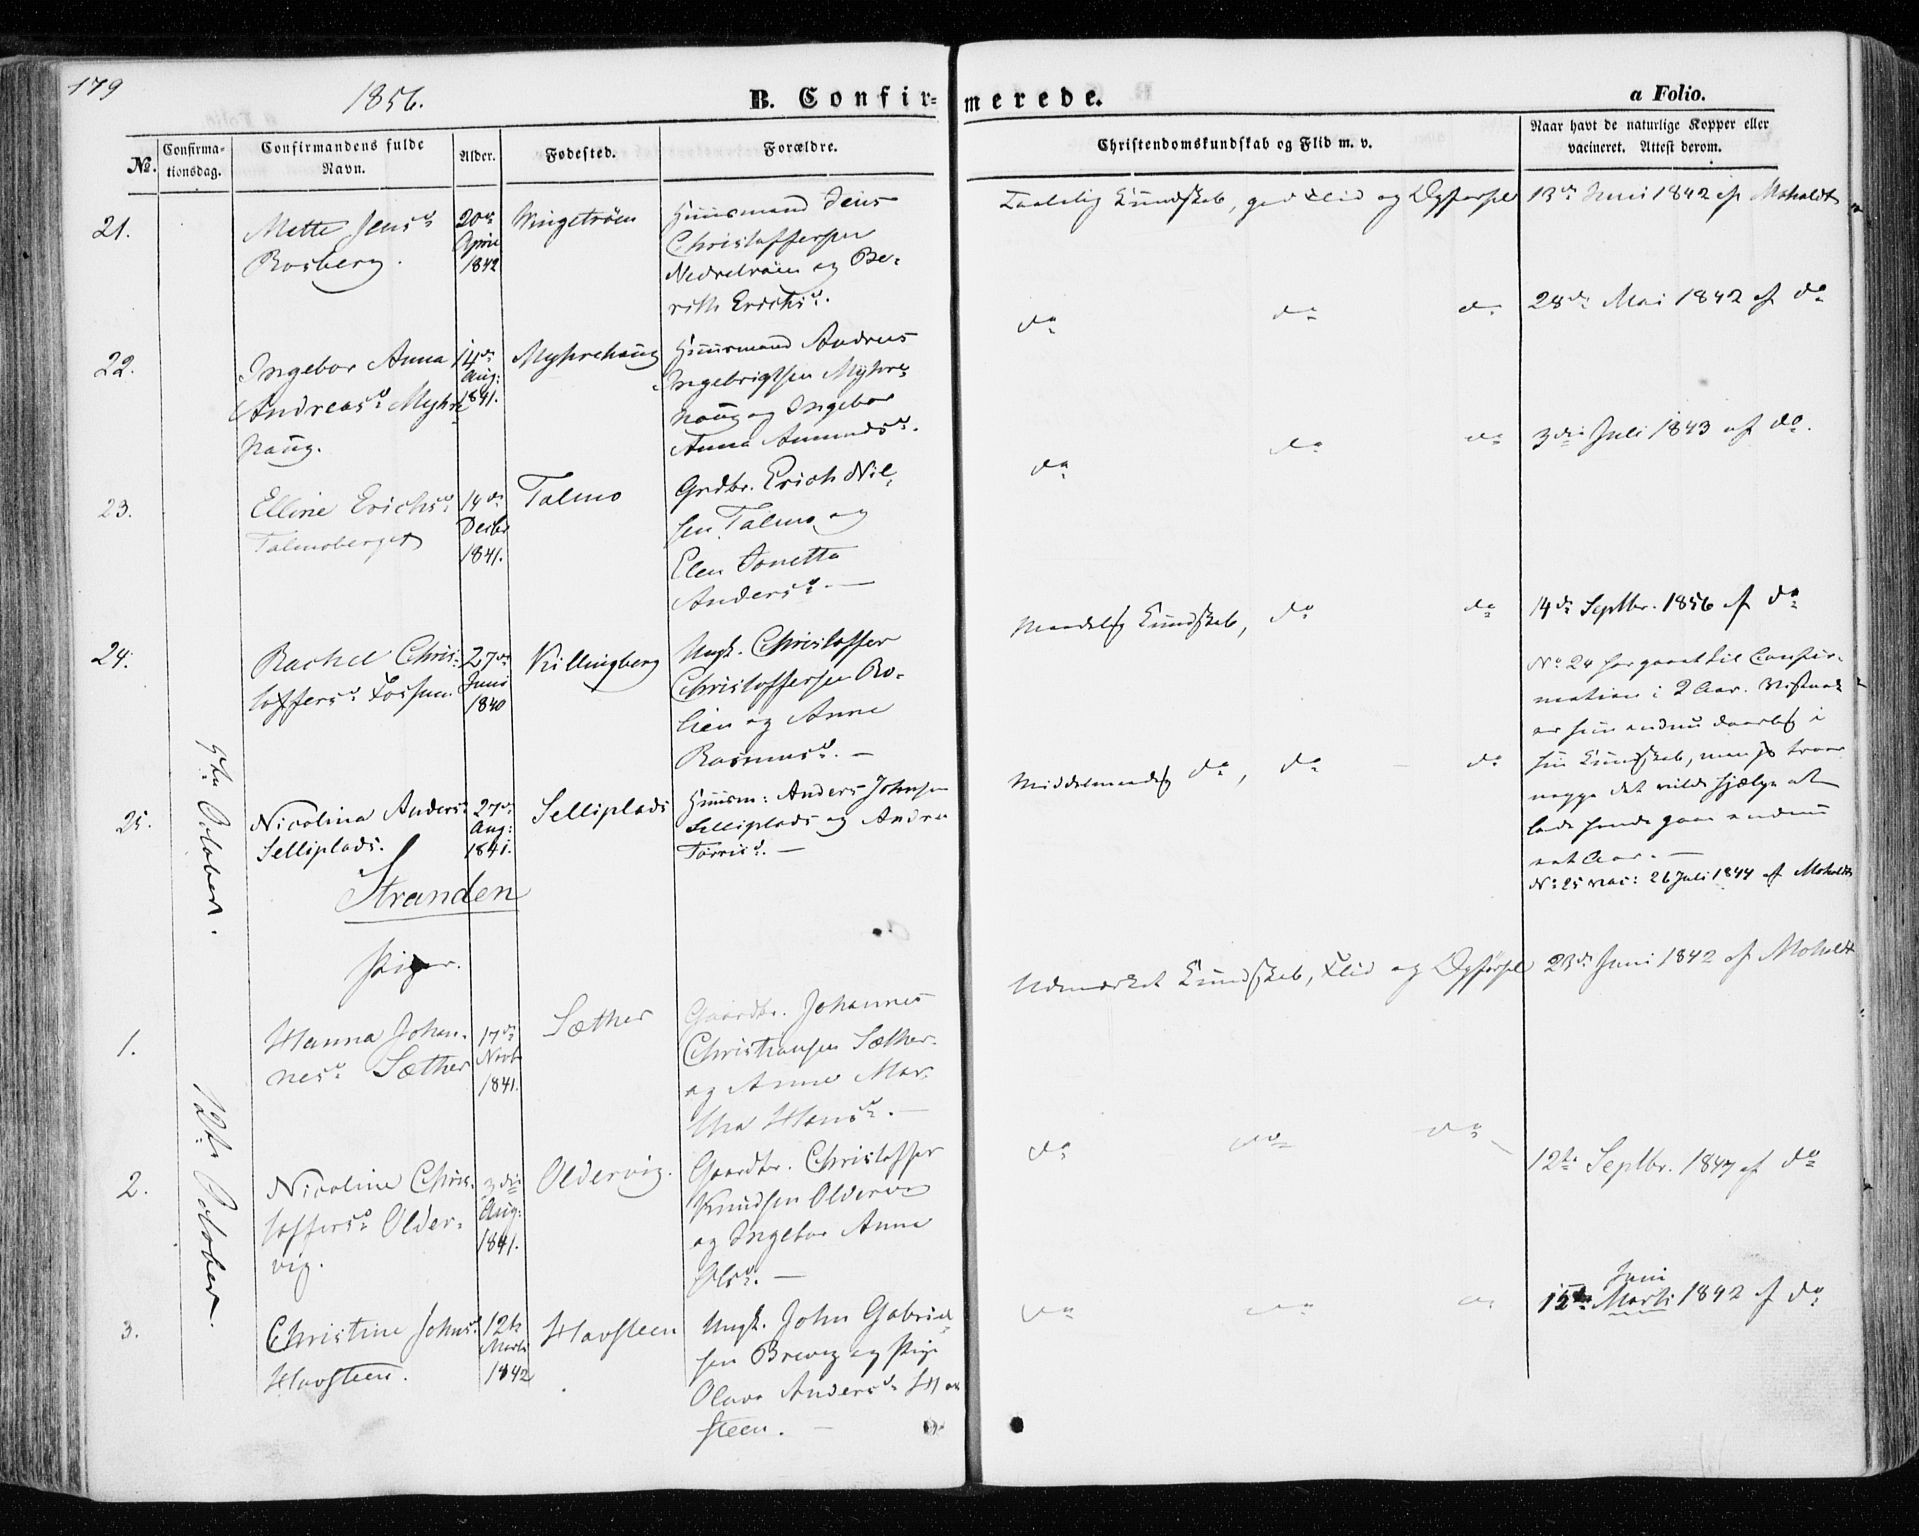 179
1856.
B. Confir-
merede.
a Folio.
No.
Confirma-
tionsdag.
Confirmandens fulde
Navn.
Alder.
Fødested.
Forældre.
Christendomskundskab og Flid m. v.
Naar havt de naturlige Kopper eller
vacineret. Attest derom.
21.
Mette Jensd.
Rosberg.
20de
April
1842
Huusmand Jens
Christoffersen
og Be-
rith Erichsd.
Taalelig Kundskab, god Flid og Opførsel
13de Juni 1842 af Moholdt
22.
Ingebor Anna
Andreasd. Myhre
haug.
14de
Aug:
1841.
Myhrehaug
Huusmand Andreas
Ingebrigtsen Myhre
haug og Ingebor
Anna Amundsd.
do
do
do
28de Mai 1842 af do
23.
Elline Erichsd.
Talmoberget
14de
Decbr
1841.
Talmo
Grdbr. Erich Nil-
sen Talmo og
Elen Jonetta
Andersd. —
do
do
do
3die Juli 1843 af do.
24.
Rachel Chris-
toffersd. Fossum.
27de
Juni
1840
Killingberg
Ungk. Christoffer
Christoffersen Ro-
lien og Anne
Rasmusd. —
Maadelig Kundskab,
do
do
14de Septbr. 1856 af do
No 24 har gaaet til Confir-
mation i 2 Aar. Vistnok
er hun endnu daarlig i
sin Kundskab, men jeg troer
neppe det vilde hjælpe at
lade hende gaae endnu
eet Aar. —
25.
5te October.
Nicolina Andersd.
Selliplads.
27de
Aug:
1841.
Selliplads
Huusm: Anders Johnsen
Selliplads og Andrea
Torrisd. —
Middelmaadig do,
do
do
No 25 vac: 26 Juli 1844 af Moholdt
Stranden
Piger.
1.
Hanna Johan-
nesd. Sæther
17de
Novb
1841.
Sæther
Gaardbr. Johannes
Christiansen Sæther
og Anne Mar-
tha Hansd. —
Udmærket Kundskab, Flid og Opførsel
23de Juni 1842 af Moholdt
12te October.
2.
Nicoline Chris-
toffersd. Older-
vig.
3die
Aug:
1841.
Oldervig.
Gaardbr. Christoffer
Knudsen Oldervig
og Ingebor Anna
Olsd. —
do
do
do
12te Septbr. 1847 af do
3.
Christine Johnsd.
Havsteen.
12te
Marts
1842
Havsteen
Ungk. John Gabriel-
sen Brevig og Pige
Olava Andersd. Hav
steen. —
do
do
do
Juni
15de Marts 1842 af do